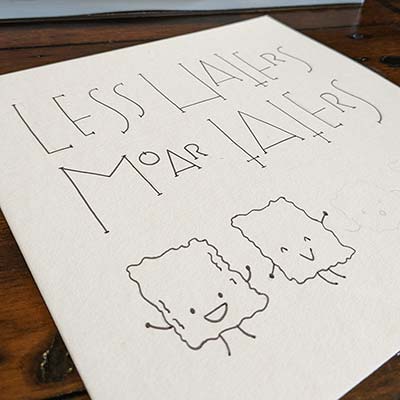 LESS HATERS
MOAR TATERS